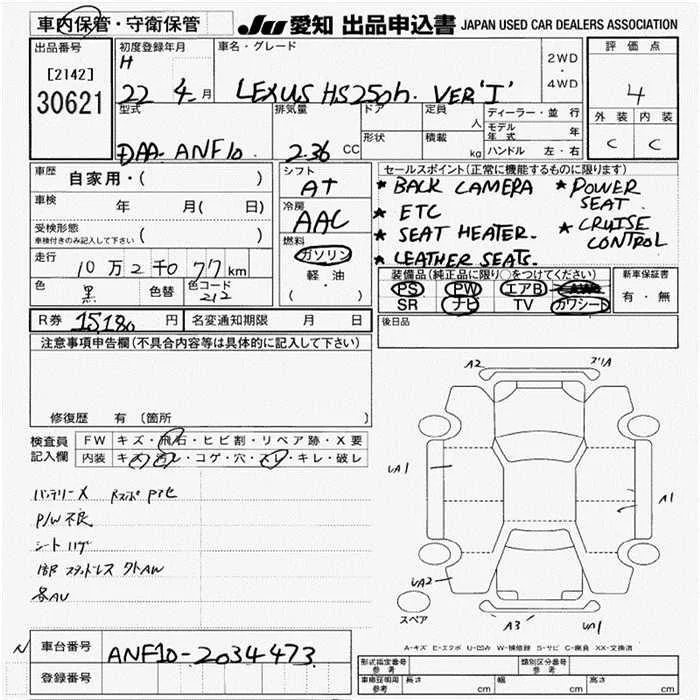 車内保管・守衛保管
JU 愛知 出品申込書 JAPAN USED CAR DEALERS ASSOCIATION
出品番号
[2142]
30621
初度登録年月
H 22 4 月
車名・グレード
LEXUS HS250h. VER'I'
2WD
・
4WD
評価点
4
外装 内装
C C
型式
DAA-ANF10
排気量
2.36 CC
ドア
形状
定員 人
積載 kg
ディーラー・並行
モデル年式 年
ハンドル 左・右
車歴
自家用・( )
車検 年 月( 日)
受検形態
車検付きのみ記入して下さい ( )
走行
10万2千077km
色 黒 色替 色コード 212
シフト
AT
冷房
AAC
燃料
ガソリン
軽・油
( )
セールスポイント(正常に機能するものに限ります)
★ BACK CAMERA ★ POWER SEAT
★ ETC
★ SEAT HEATER. ★ CRUISE CONTROL
★ LEATHER SEATS.
装備品(純正品に限り○をつけてください)
PS PW エアB
SR ナビ TV カワシート
新車保証書
有・無
R券 15,180 円 名変通知期限 月 日
後日品
注意事項申告欄(不具合内容等は具体的に記入して下さい)
修復歴 有 (箇所
検査員記入欄
FW キズ・飛石・ヒビ割・リペア跡・X要
内装 キズ・汚レ・コゲ・穴・スレ・キレ・破レ
バッテリーX
P/W不良
シート ハゲ
各AU
A2
UA1
A1
UA2
A3
スペア
A-キズ E-エクボ U-凹み W-補修跡 S-サビ C-腐食 XX-交換済
車台番号 ANF10-2034473
登録番号
型式指定番号 参考
類別区分番号 参考
車庫証明用 参考 長さ cm 幅 cm 高さ cm